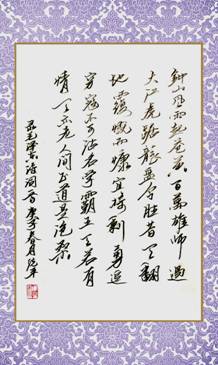 钟山风雨起苍黄百萬雄师過
大江虎踞龍盘今胜昔天翻
地覆慨而慷宜将剩勇追
穷寇不可沽名学霸王天若有
情天亦老人间正道是沧桑
录毛泽东诗词一首 庚子春月